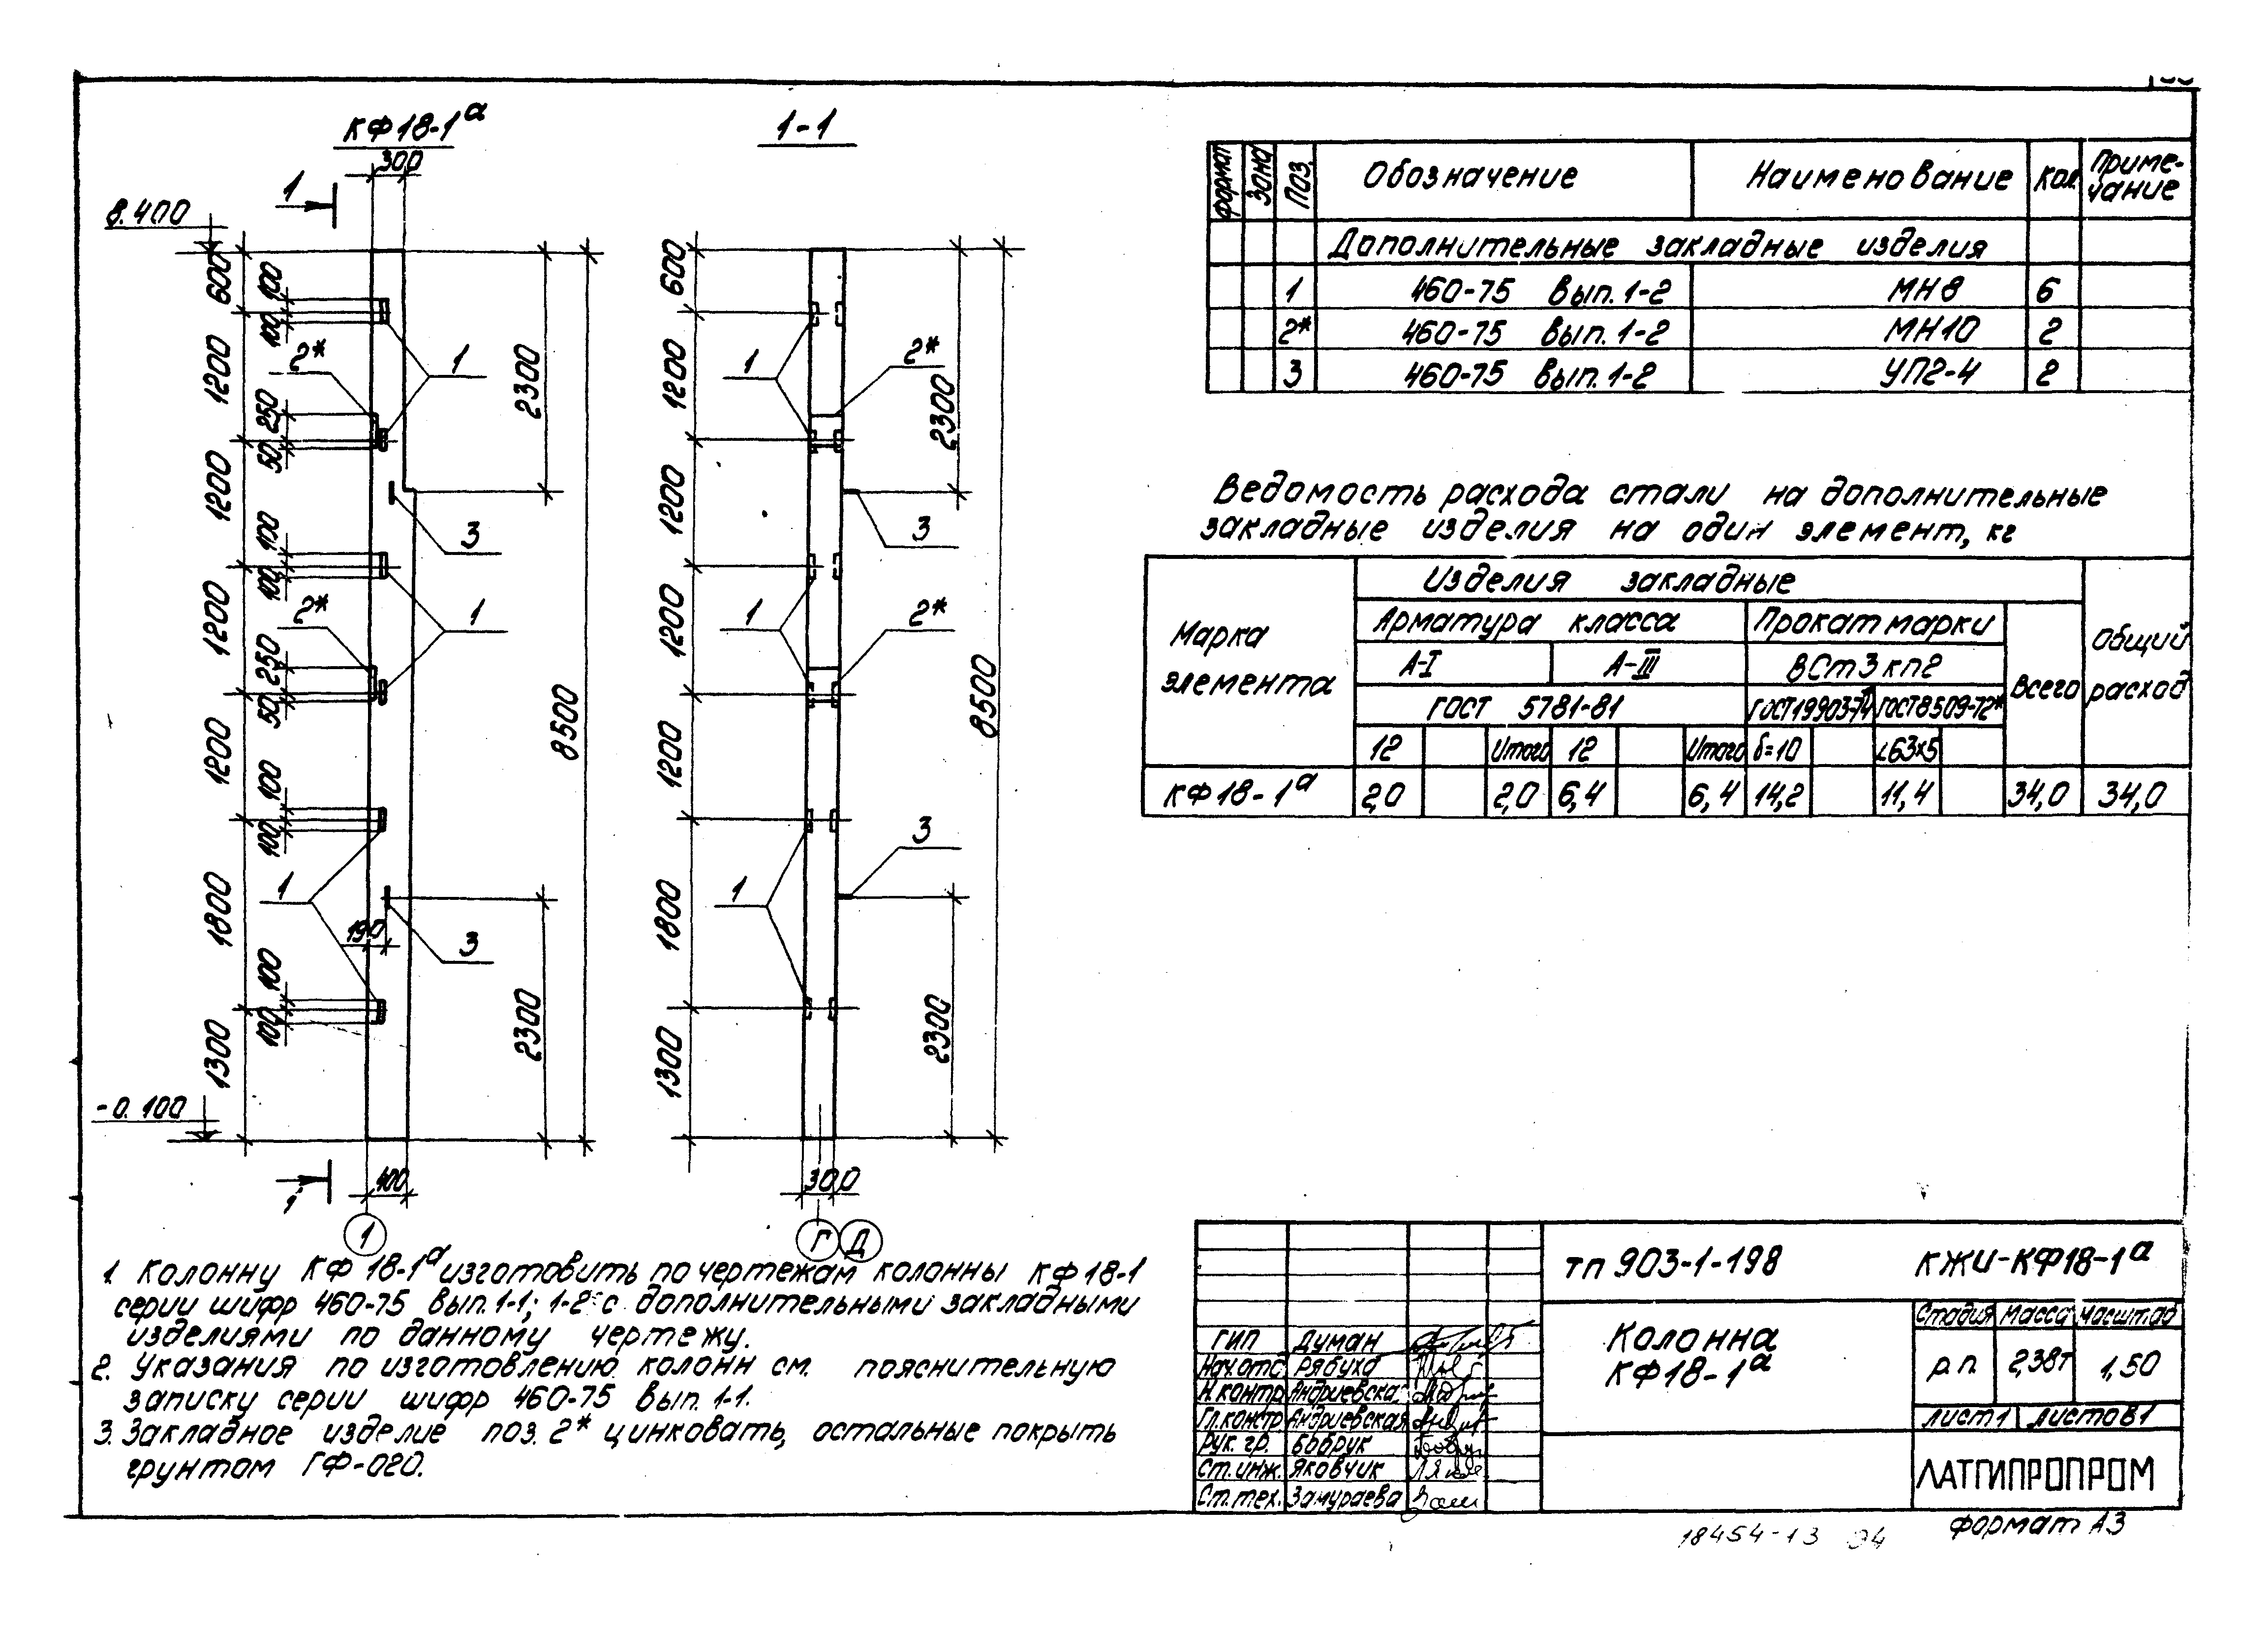 КФ18-1а
300
1
8.400
600
100
100
1200
2*
1
250
50
2300
1200
3
100
100
1200
2*
1
250
50
8500
1200
100
100
1
1800
190
3
100
100
2300
1300
-0.100
1
400
1
1-1
600
1
2*
1200
2300
1200
3
1200
1
2*
8500
1200
3
1
1800
2300
1300
300
Г Д
Формат Зона Поз. Обозначение Наименование Кол. Приме-
чание
Дополнительные закладные изделия
1 460-75 Вып. 1-2 МН8 6
2* 460-75 Вып. 1-2 МН10 2
3 460-75 Вып. 1-2 УП2-4 2
Ведомость расхода стали на дополнительные
закладные изделия на один элемент, кг
Марка
элемента
Изделия закладные
Общий
расход
Арматура класса Прокат марки
Всего
А-I А-III ВСт3кп2
ГОСТ 5781-81 ГОСТ19903-74 ГОСТ8509-72*
12 Итого 12 Итого δ=10 ∟63х5
КФ18-1а 2,0 2,0 6,4 6,4 14,2 11,4 34,0 34,0
1. Колонну КФ18-1а изготовить по чертежам колонны КФ18-1
серии шифр 460-75 вып. 1-1; 1-2 с дополнительными закладными
изделиями по данному чертежу.
2. Указания по изготовлению колонн см. пояснительную
записку серии шифр 460-75 вып. 1-1.
3. Закладное изделие поз. 2* цинковать, остальные покрыть
грунтом ГФ-020.
тп 903-1-198 КЖИ-КФ18-1а
Колонна
КФ18-1а
Стадия Масса Масштаб
р.п. 2,38т 1:50
лист 1 листов 1
ГИП Думан
Нач.отд. Рябуха
Н.контр. Андриевская
Гл.констр. Андриевская
Рук. гр. Бобрук
Ст.инж. Яковчик
Ст.тех. Замураева
ЛАТГИПРОПРОМ
Формат А3
18454-13 94